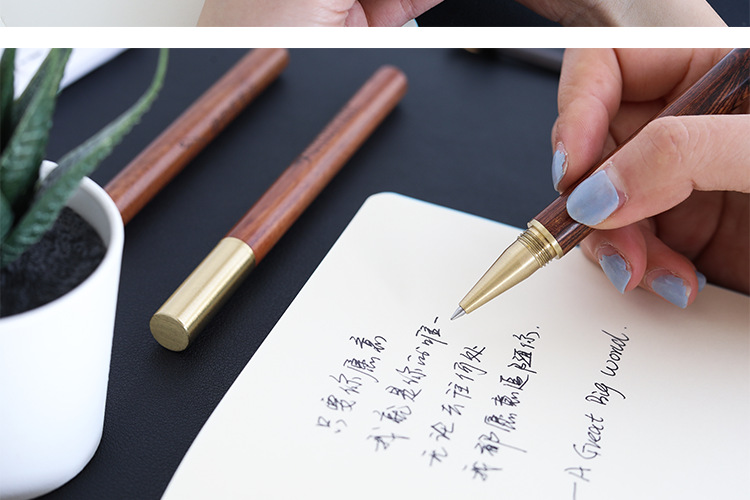 只要你愿意
我就是你的唯一
无论去往何处
我都愿意追随你.
—A Great Big World.